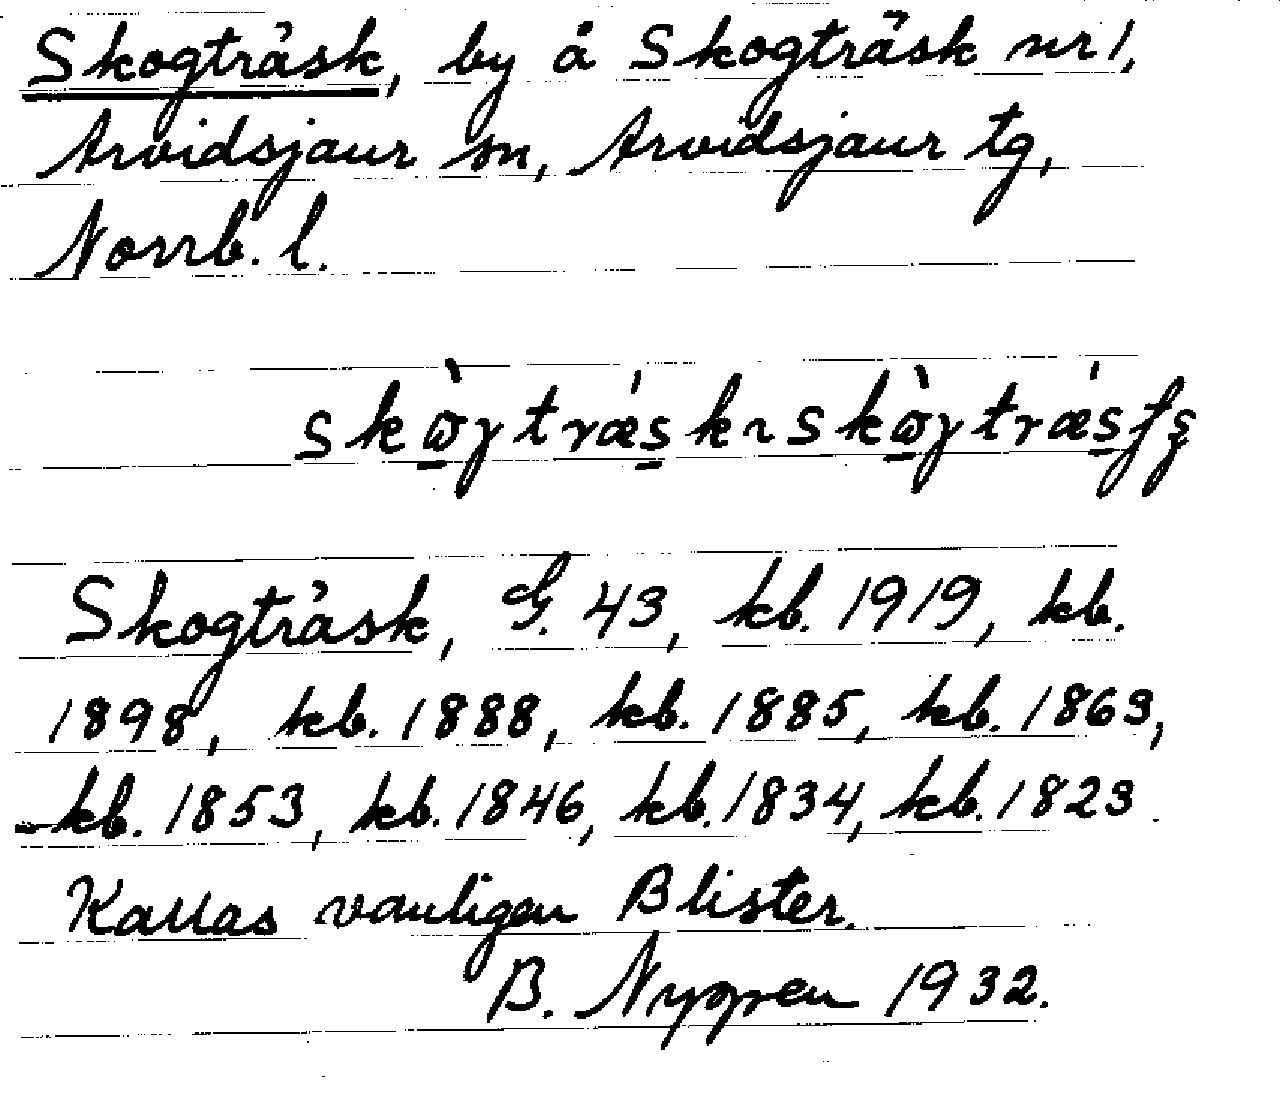 Skogträsk, by å Skogträsk nr 1,
Arvidsjaur sn, Arvidsjaur tg,
Norrb. l.
Skogträsk, G. 43, kb. 1919, kb.
1898, kb. 1888, kb. 1885, kb. 1863,
kb. 1853, kb. 1846, kb. 1834, kb. 1823
Kallas vanligen Blister.
B. Nygren 1932.